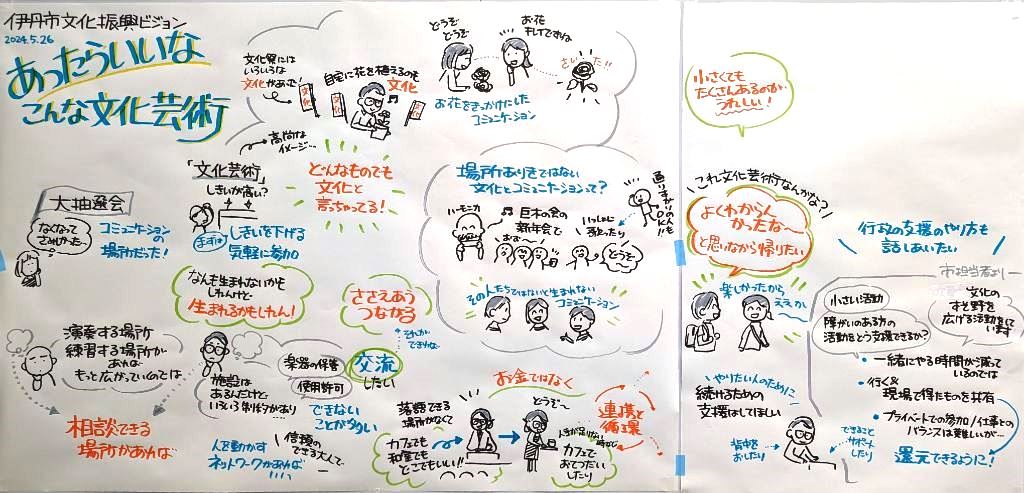 伊丹市文化振興ビジョン
2024.5.26
あったらいいな
こんな文化芸術
文化祭には
いろいろな
文化があった!
自宅に花を植えるのも
文化
どうぞ
どうぞ
お花
キレイですね
さいた!!
お花をきっかけにした
コミュニケーション
小さくても
たくさんあるのが
うれしい!
高尚な
イメージ…
「文化芸術」
しきいが高い?
まずは
しきいを下げる
気軽に参加
どんなものでも
文化と
言っちゃってる!
大抽選会
なくなって
さみしかった…
コミュニケーションの
場所だった!
場所ありきではない
文化とコミュニケーションって?
ハーモニカ
巨木の会の
新年会で
いっしょに
歌ったり
おぉ
どうぞ
通りすがりの人も
OK!!
その人たちではないと生まれない
コミュニケーション
これ文化芸術なんかな?
よくわからん
かったな〜
と思いながら帰りたい
楽しかったから
ええか
行政の支援のやり方も
話しあいたい
市担当者より
小さい活動
障がいのある方の
活動をどう支援できるか?
文化の
すそ野を
広げる活動をして
います
・一緒にやる時間が減って
いるのでは
・行く&
現場で得たものを共有
・プライベートでの参加/仕事との
バランスは難しいが…
還元できるように!
なんも生まれないかも
しれんけど
生まれるかもしれん!
ささえあう
つながる
それが
できれば
交流
したい
演奏する場所
練習する場所が
あれば
もっと広がっていくのでは
相談できる
場所があれば
施設は
あるんだけど
いろいろ制約があり
楽器の保管
使用許可
できない
ことが多い
人を動かす
ネットワークがあれば
信頼の
できる大人で…
お金ではなく
落語できる
場所がなくて
カフェでも
和室でも
どこでもいい!!
どうぞ〜
人手が足りない
時など
カフェで
おてつだい
したり
連携と
循環
やりたい人のために
続けるための
支援はしてほしい
背中を
おしたり
できること
サポート
したり